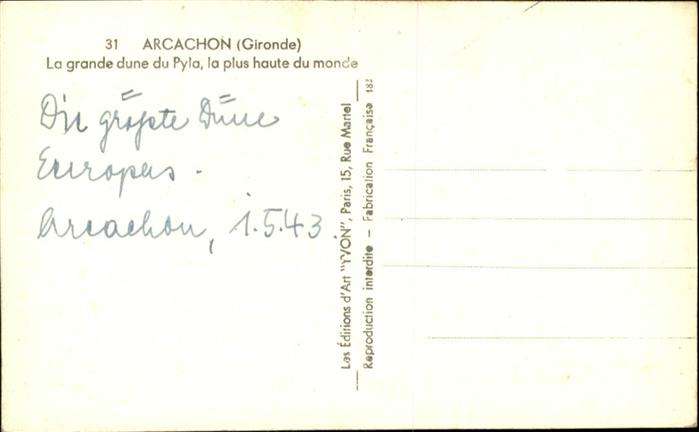 31 ARCACHON (Gironde)
La grande dune du Pyla, la plus haute du monde
Die größte Düne
Europas.
Arcachon, 1.5.43.
Les Éditions d'Art "YVON", Paris, 15, Rue Martel
Reproduction interdite – Fabrication Française